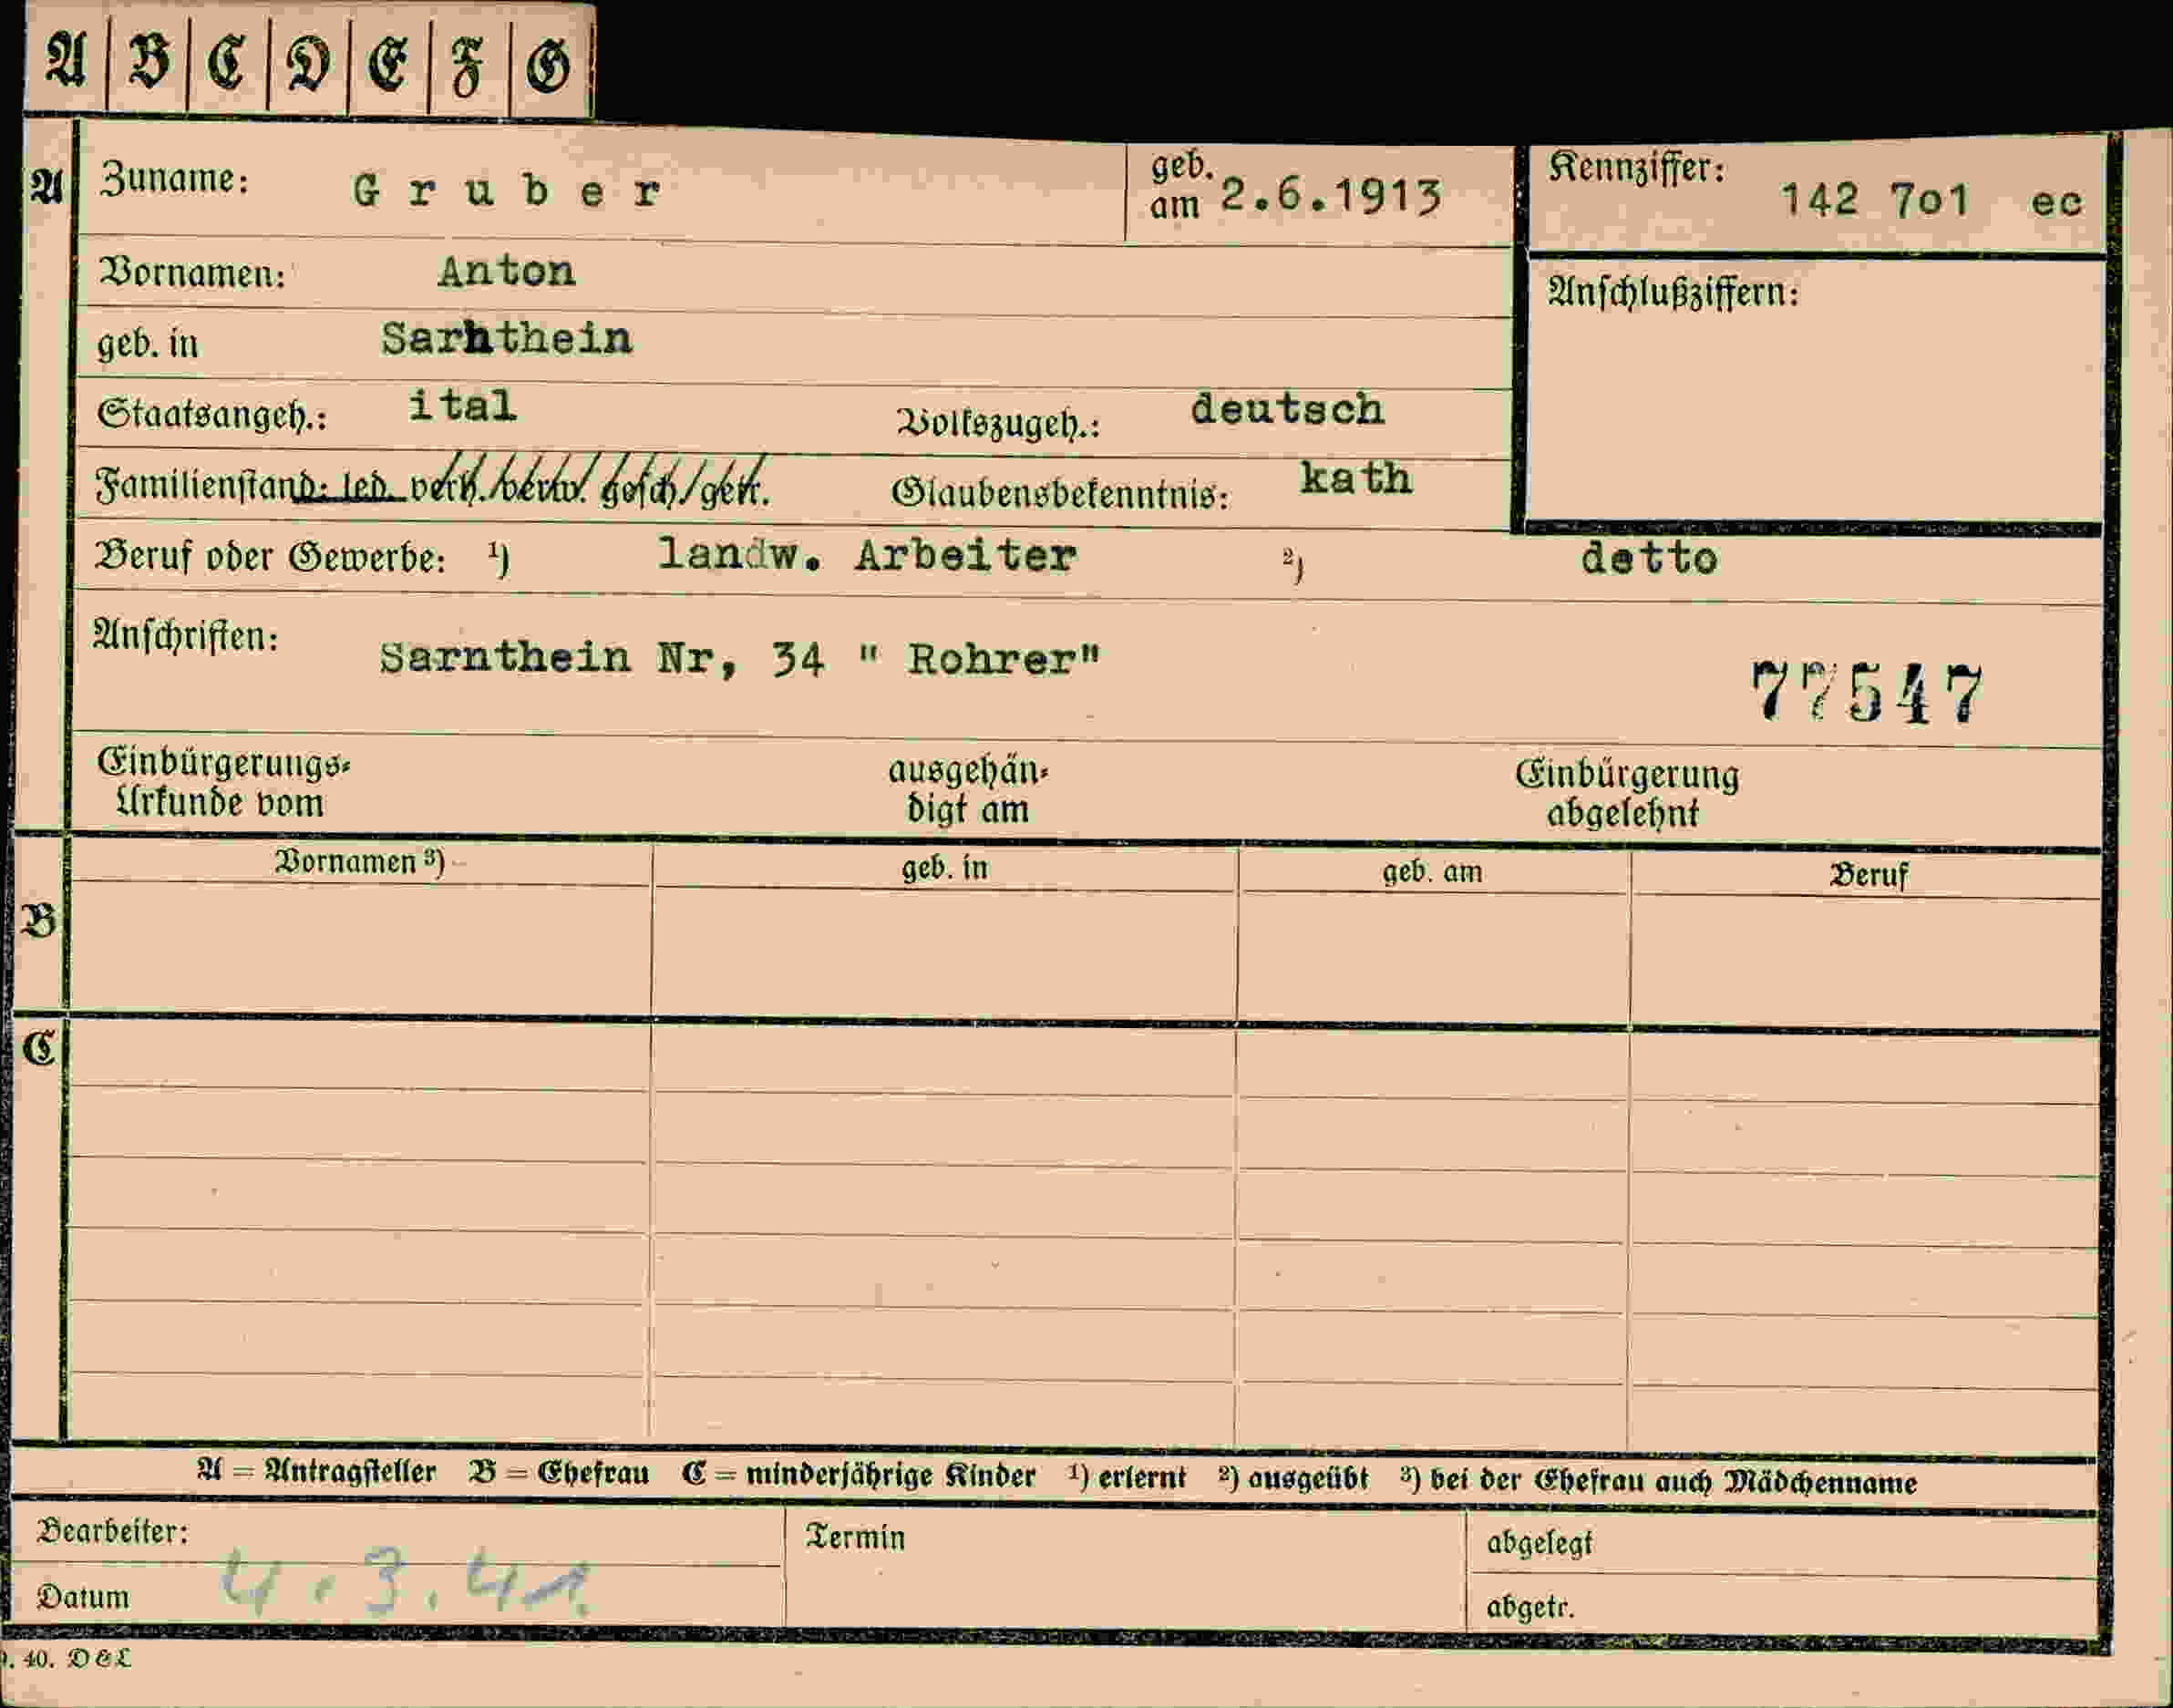 A B C D E F G
A Zuname: Gruber geb. am 2.6.1913 Kennziffer: 142 7o1 ec
Vornamen: Anton Anschlußziffern:
geb. in Sarnthein
Staatsangeh.: ital Volkszugeh.: deutsch
Familienstand: led. verh. verw. gesch. getr. Glaubensbekenntnis: kath
Beruf oder Gewerbe: ¹) landw. Arbeiter ²) detto
Anschriften: Sarnthein Nr, 34 " Rohrer"
77547
Einbürgerungs- ausgehän- Einbürgerung
Urkunde vom digt am abgelehnt
Vornamen ³) geb. in geb. am Beruf
B
C
A = Antragsteller B = Ehefrau C = minderjährige Kinder ¹) erlernt ²) ausgeübt ³) bei der Ehefrau auch Mädchenname
Bearbeiter: Termin abgelegt
Datum 4.3.41. abgetr.
40. D&L